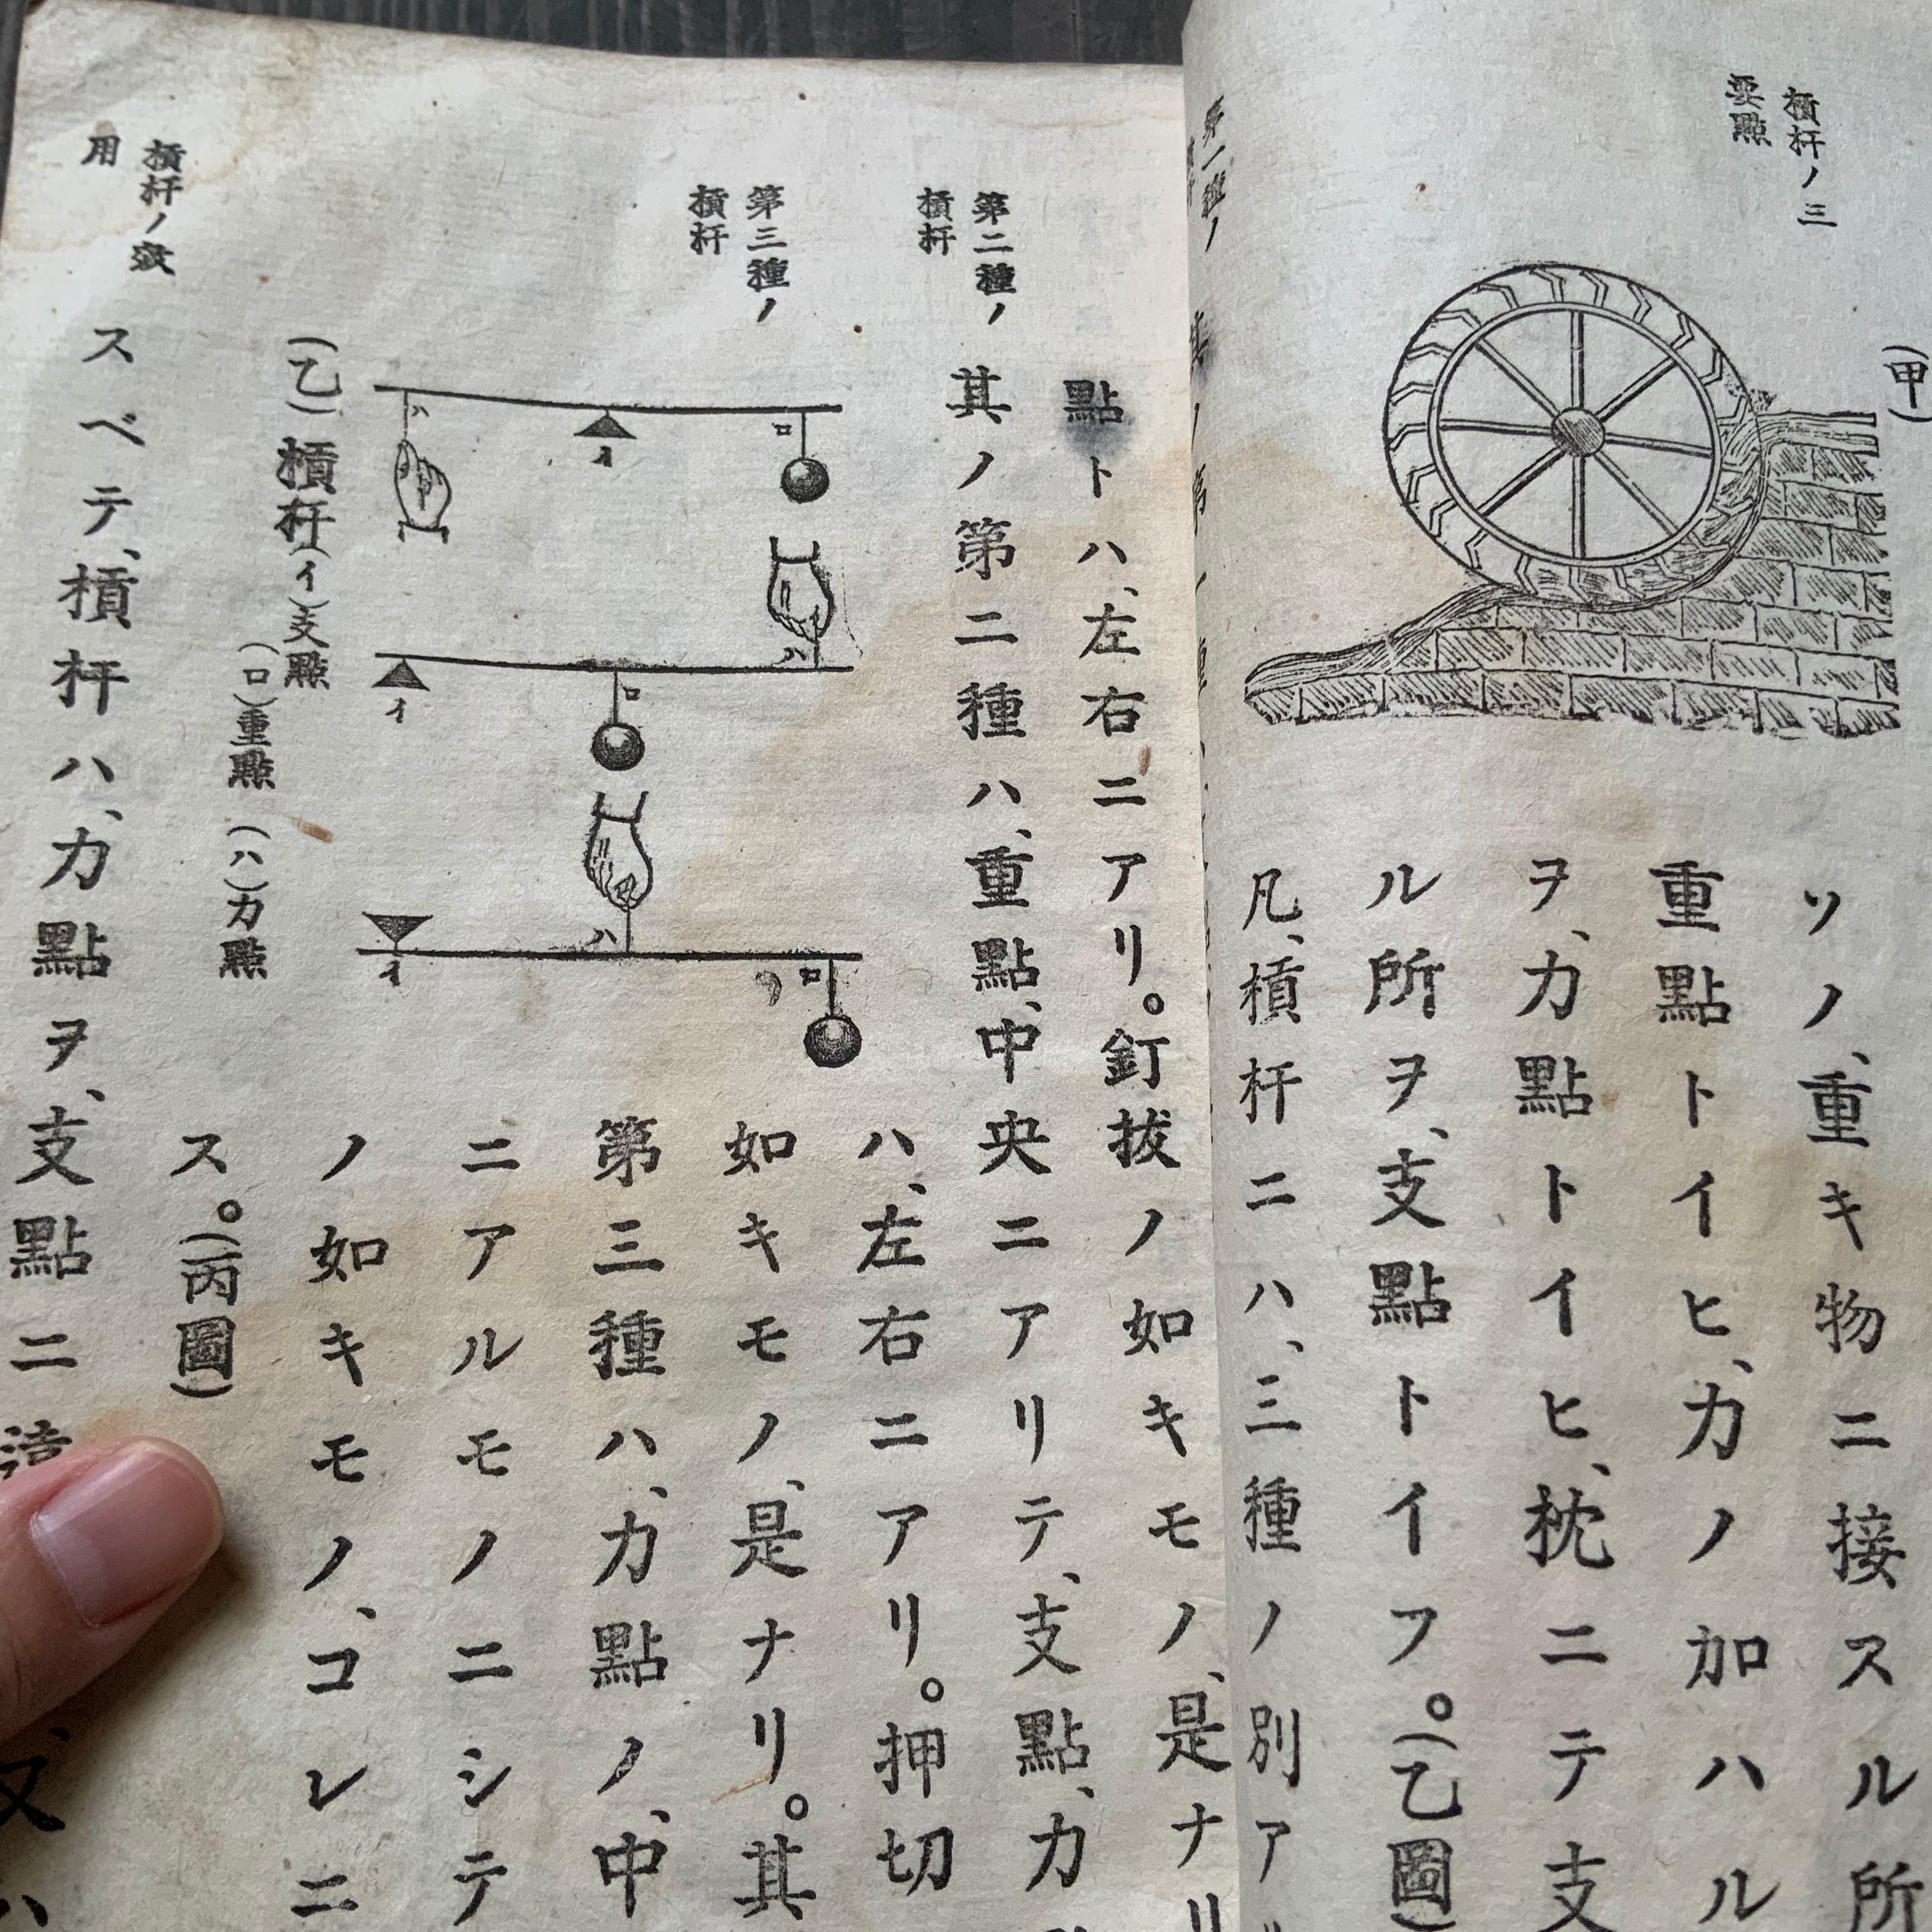 槓杆ノ三
要點
(甲)
ソノ、重キ物ニ接スル所
重點トイヒ、力ノ加ハル
ヲ、力點トイヒ、枕ニテ支
ル所ヲ、支點トイフ。(乙圖)
凡、槓杆ニハ、三種ノ別ア
第二種ノ
槓杆
第三種ノ
槓杆
槓杆ノ效
用
點トハ、左右ニアリ。釘拔ノ如キモノ、是ナリ
其ノ第二種ハ、重點、中央ニアリテ、支點、力
ハ、左右ニアリ。押切
如キモノ、是ナリ。其
第三種ハ、力點ノ、中
ニアルモノニシテ
ノ如キモノ、コレニ
ス。(丙圖)
ハ
イ
ロ
ハ
イ
ロ
ハ
イ
ロ
(乙)槓杆(イ)支點
(ロ)重點 (ハ)力點
スベテ、槓杆ハ、力點ヲ、支點ニ遠